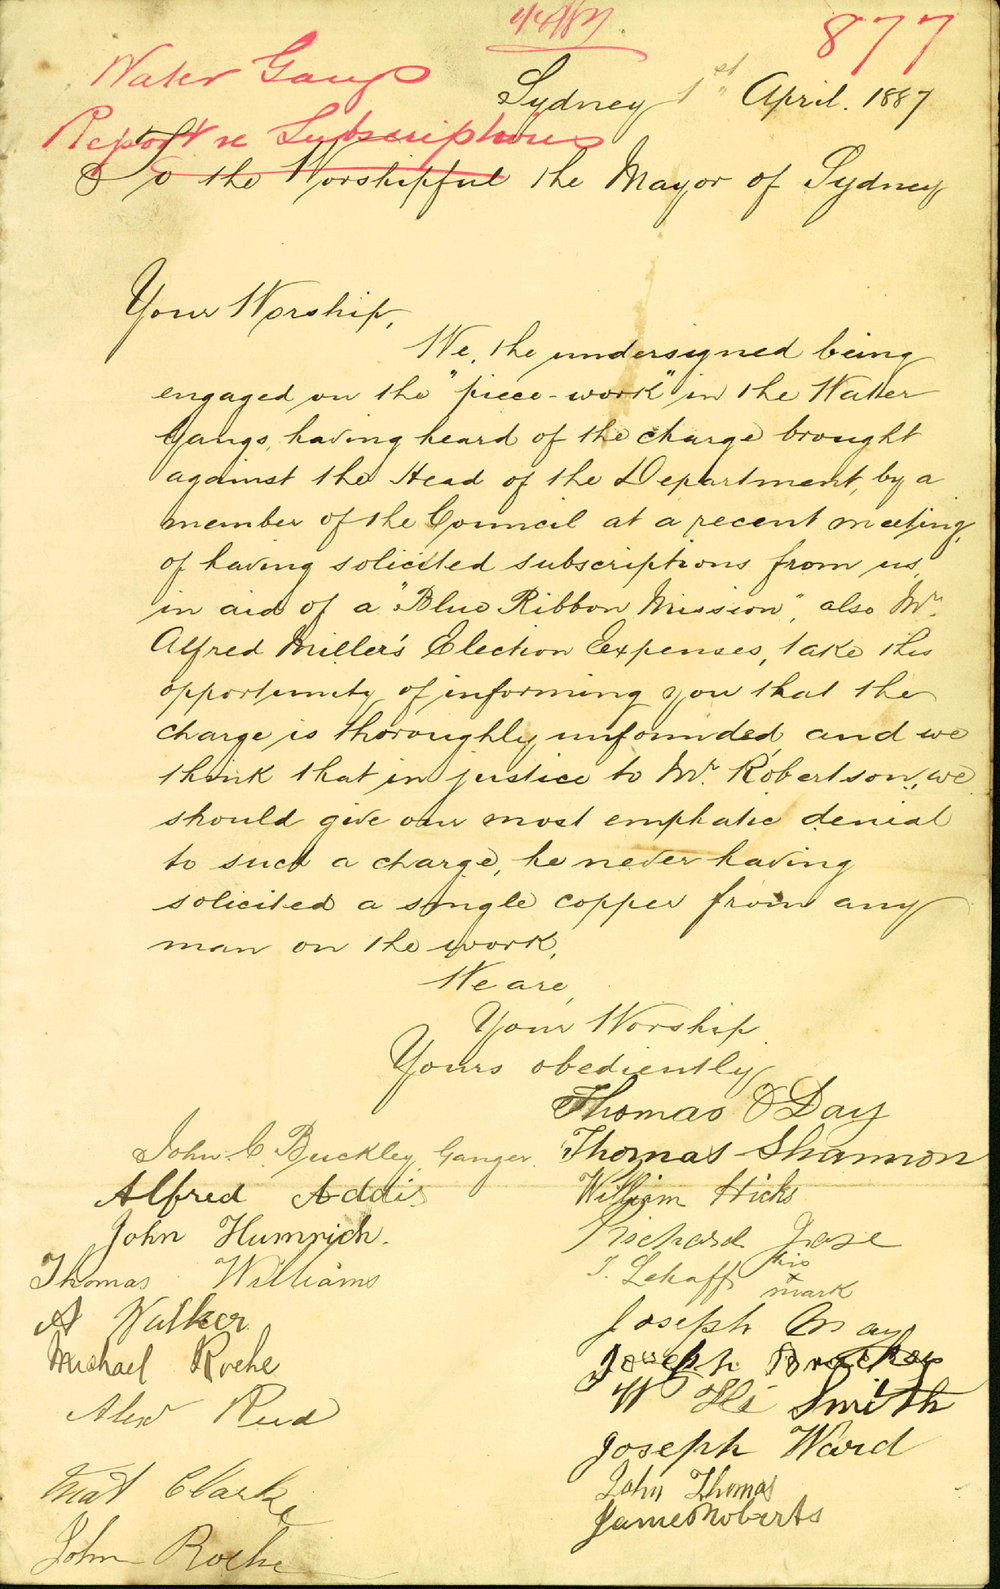 877
Water Gangs
Sydney 1st April. 1887
Report re Subscriptions
To the Worshipful the Mayor of Sydney
Your Worship,
We, the undersigned being
engaged on the "piece-work" in the Water
Gangs, having heard of the charge brought
against the Head of the Department, by a
member of the Council at a recent meeting,
of having solicited subscriptions from us,
in aid of a "Blue Ribbon Mission", also Mr.
Alfred Miller's Election Expenses, take this
opportunity of informing you that the
charge is thoroughly unfounded, and we
think that in justice to Mr. Robertson, we
should give our most emphatic denial
to such a charge, he never having
solicited a single copper from any
man on the work.
We are,
Your Worship
Yours obediently
Thomas O Day
John C. Buckley, Ganger.
Thomas Shannon
Alfred Addis
William Hicks
John Humrich.
Richard
Thomas Williams
T. Lehaff his
x
mark
A Walker
Joseph May
Michael Roche
Joseph
Alex Reid
W Smith
Joseph Ward
Mat Clarke
John Thomas
James Roberts
John Roche